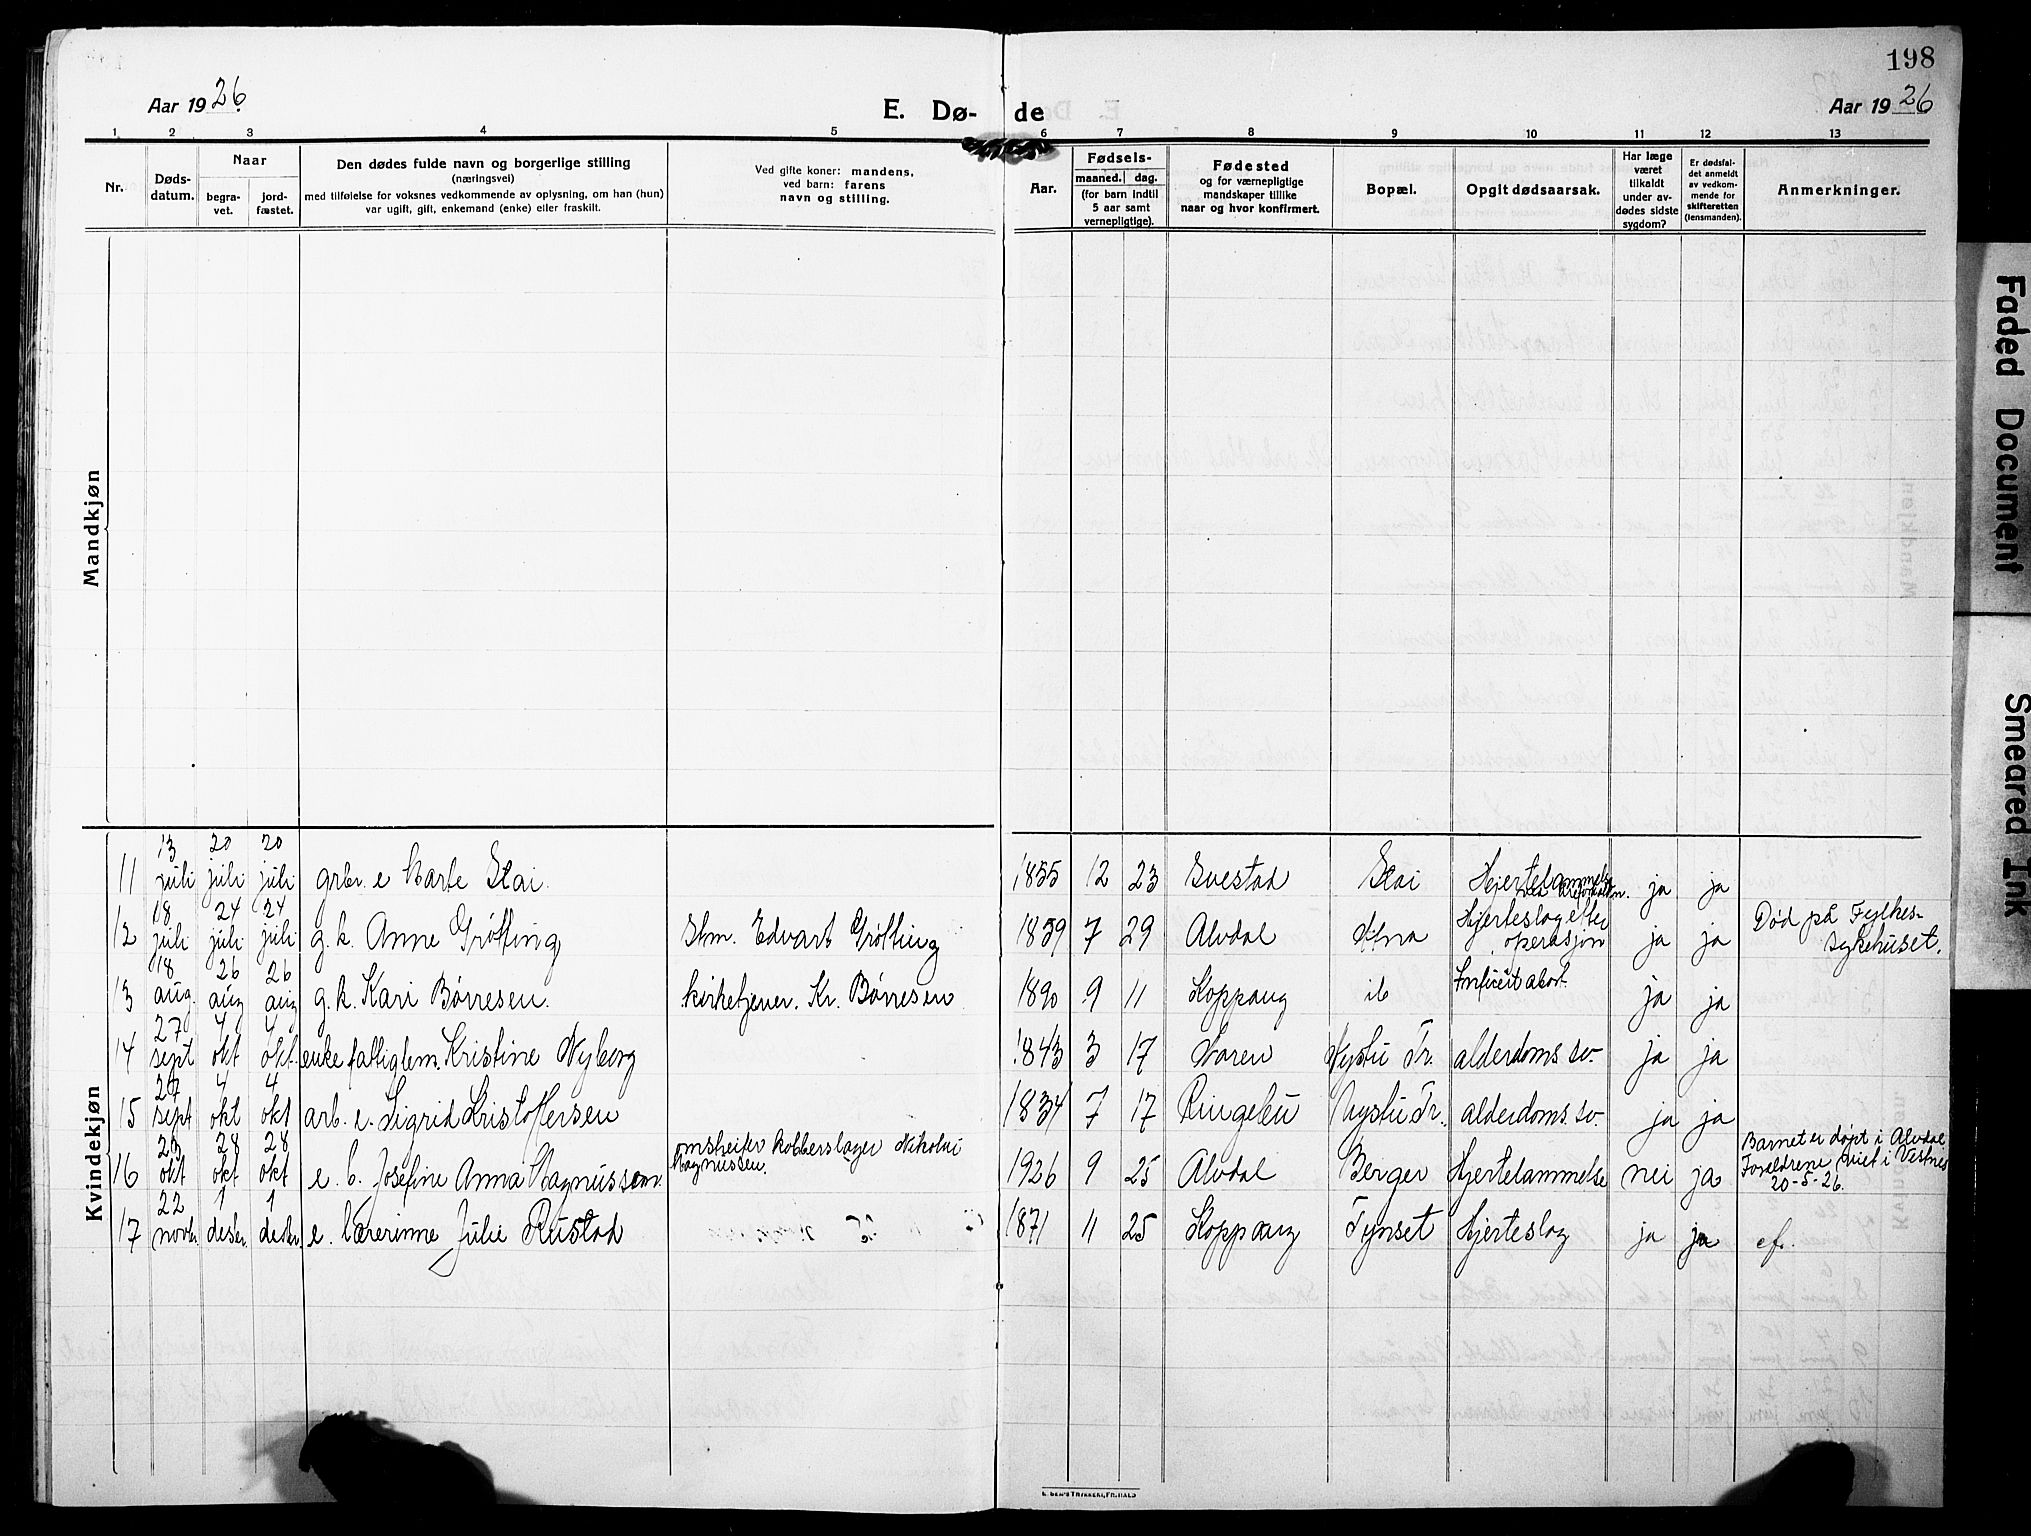 198
Aar 1926
E. Dø- de
Aar 1926
1 2 3 4 5 6 7 8 9 10 11 12 13
Nr.
Døds-
datum.
Naar
begra-
vet.
jord-
fæstet.
Den dødes fulde navn og borgerlige stilling
(næringsvei)
med tilføielse for voksnes vedkommende av oplysning, om han (hun)
var ugift, gift, enkemand (enke) eller fraskilt.
Ved gifte koner: mandens,
ved barn: farens
navn og stilling.
Aar.
Fødsels-
maaned. dag.
(for barn indtil
5 aar samt
vernepligtige).
Fødested
og for værnepligtige
mandskaper tillike
naar og hvor konfirmert.
Bopæl.
Opgit dødsaarsak.
Har læge
været
tilkaldt
under av-
dødes sidste
sygdom?
Er dødsfal-
det anmeldt
av vedkom-
mende for
skifteretten
(lensmanden).
Anmerkninger.
Mandkjøn
Kvindekjøn
11 13 juli 20 juli 20 juli grbr. e Marte Stai. 1835 12 23 Evestad Stai Hjertelammelse ja ja
12 18 juli 24 juli 24 juli g. k. Anne Grøtting Stm. Edvart Grøtting 1859 7 29 Alvdal Atna Hjerteslag efter
operasjon ja ja Død på Fylkes-
sykehuset.
13 18 aug. 26 aug 26 aug g. k. Kari Børresen. kirketjener. Kr. Børresen 1890 9 11 Koppang ib abort. ja ja
14 27 sept 4 okt 4 okt. enke fattiglem. Kristine Nyborg 1843 3 17 Noren Nystu Tr. alderdoms sv. ja ja
15 27 sept 4 okt 4 okt arb. e. Sigrid Kristoffersen 1834 7 17 Ringebu Nystu Tr. alderdoms. sv. ja ja
16 23 okt 28 okt 28 okt e. b. Josefine Anna Magnussen. omstreifer kobberslager Nikolai
Magnussen. 1926 9 25 Alvdal Berger Hjertelammelse nei ja Barnet er døpt i Alvdal
Foreldrene viet i Vestnes
20-5-26.
17 22 novbr. 1 desbr. 1 desbr. e. lærerinne Julie Rustad 1871 11 25 Koppang Tynset Hjerteslag ja ja cf.
Faded Document
Smeared Ink